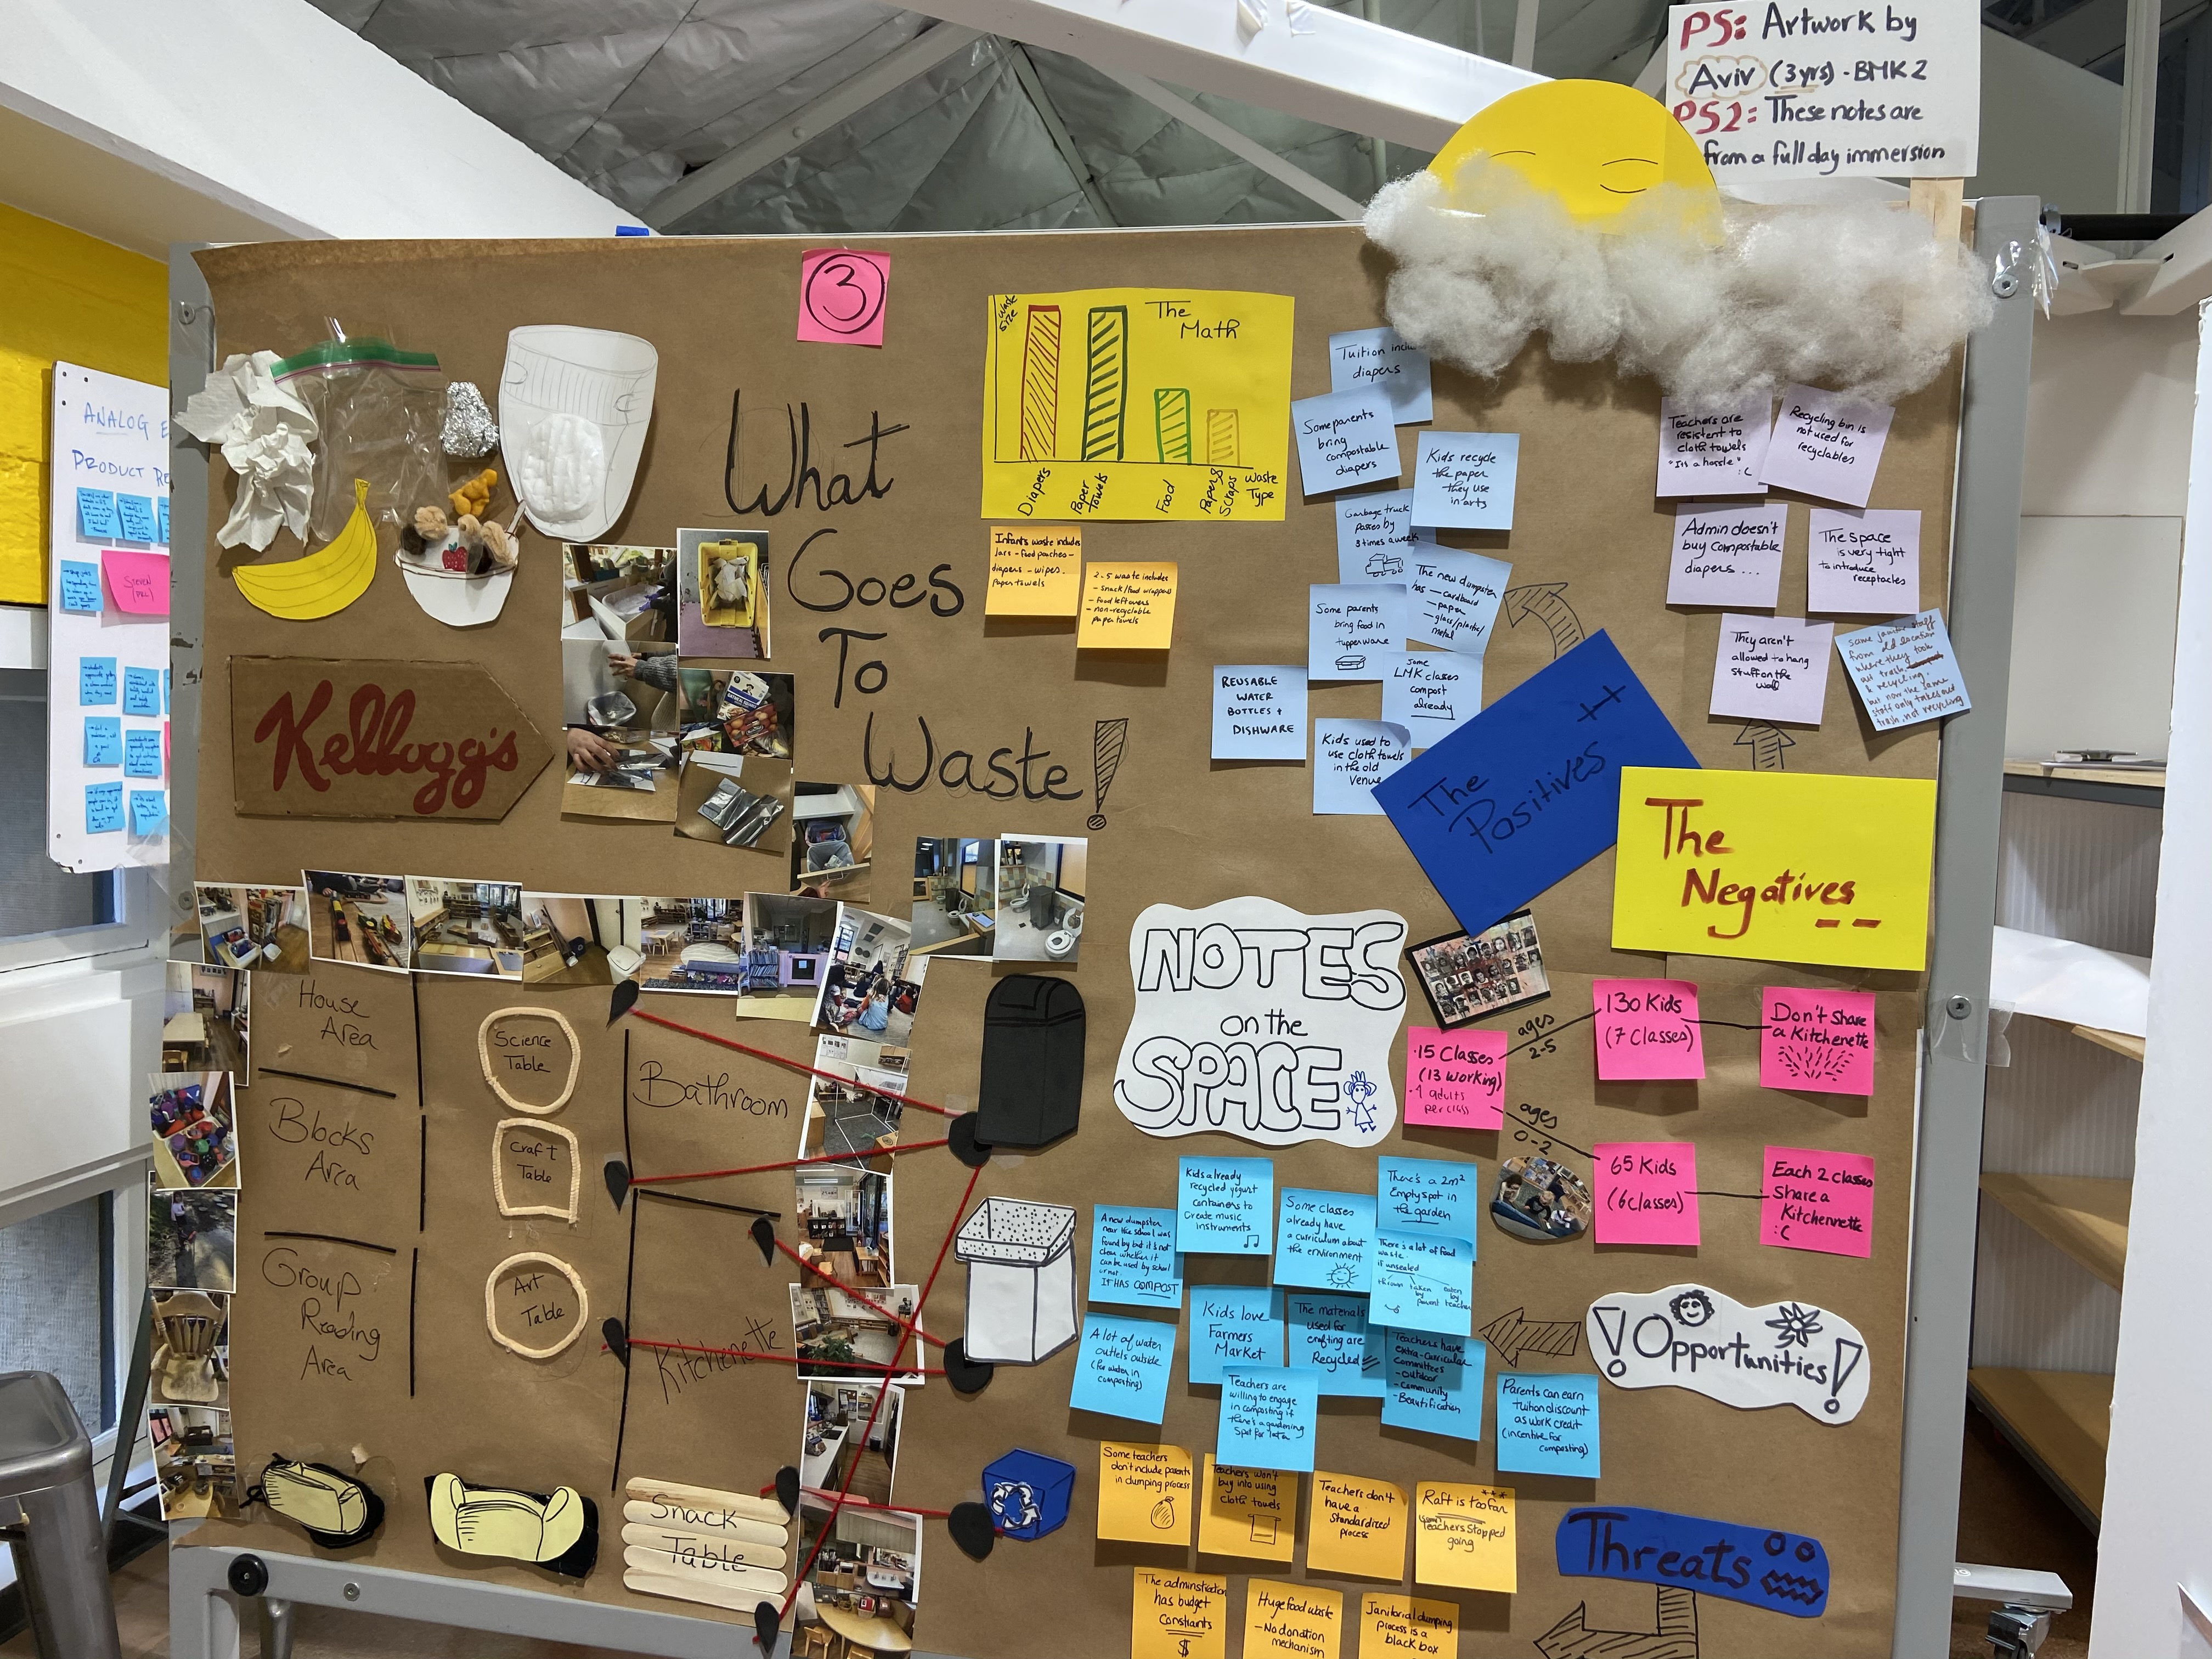 PS: Artwork by
Aviv (3yrs) - BMK2
PS2: These notes are
from a full day immersion
ANALOG E
PRODUCT RE
3
What
Goes
To
Waste!
Kellogg's
Waste
Size
The
Math
Diapers
Paper
Towels
Food
Paper
Scraps
Waste
Type
Infants waste includes
Jars - food pouches -
diapers - wipes -
paper towels
2-5 waste includes
- snack/food wrappers
- food leftovers
- non-recyclable
paper towels
Tuition incl
diapers
Some parents
bring
compostable
diapers
Kids recycle
the paper
they use
in arts
Garbage truck
passes by
3 times a week
The new dumpster
has - cardboard
- paper
- glass/plastic/
metal
Some parents
bring food in
tupperware
Some
LMK classes
compost
already
REUSABLE
WATER
BOTTLES +
DISHWARE
Kids used to
use cloth towels
in the old
Venue
The
Positives
++
Teachers are
resistent to
cloth towels
"Its a hassle"
:(
Recycling bin is
not used for
recyclables
Admin doesn't
buy compostable
diapers ...
The space
is very tight
to introduce
receptacles
They aren't
allowed to hang
stuff on the
wall
same janitor staff
from old location
where they took
out trash
& recycling.
but now the same
staff only takes out
trash, not recycling
The
Negatives
--
NOTES
on the
SPACE
·15 Classes
(13 working)
·4 adults
per class
ages
2-5
130 Kids
(7 Classes)
Don't Share
a Kitchenette
ages
0-2
65 Kids
(6 Classes)
Each 2 classes
Share a
Kitchennette
:(
House
Area
Blocks
Area
Group
Reading
Area
Science
Table
Craft
Table
Art
Table
Bathroom
Kitchenette
Snack
Table
Kids already
recycled yogurt
containers to
create music
instruments
A new dumpster
near the school was
found by but it's not
clear whether it
can be used by school
or not.
IT HAS COMPOST
Some classes
already have
a curriculum about
the environment
There's a 2m²
Empty spot in
the garden
There's a lot of food
waste.
if unsealed
thrown
by
taken
parent
eaten
by
teacher
A lot of water
outlets outside
(for water in
composting)
Kids love
Farmers
Market
The materials
used for
crafting are
Recycled
Teachers have
extra-curricular
committees
- Outdoor
- Community
- Beautification
Teachers are
willing to engage
in composting if
there's a gardening
spot for later
Parents can earn
tuition discount
as work credit
(incentive for
composting)
!Opportunities!
Some teachers
don't include parents
in dumping process
Teachers won't
buy into using
cloth towels
Teachers don't
have a
standardized
process
Raft is too far
Teachers stopped
going
The adminstration
has budget
Constraints
$
Huge food waste
- No donation
mechanism
Janitorial dumping
process is a
black box
Threats